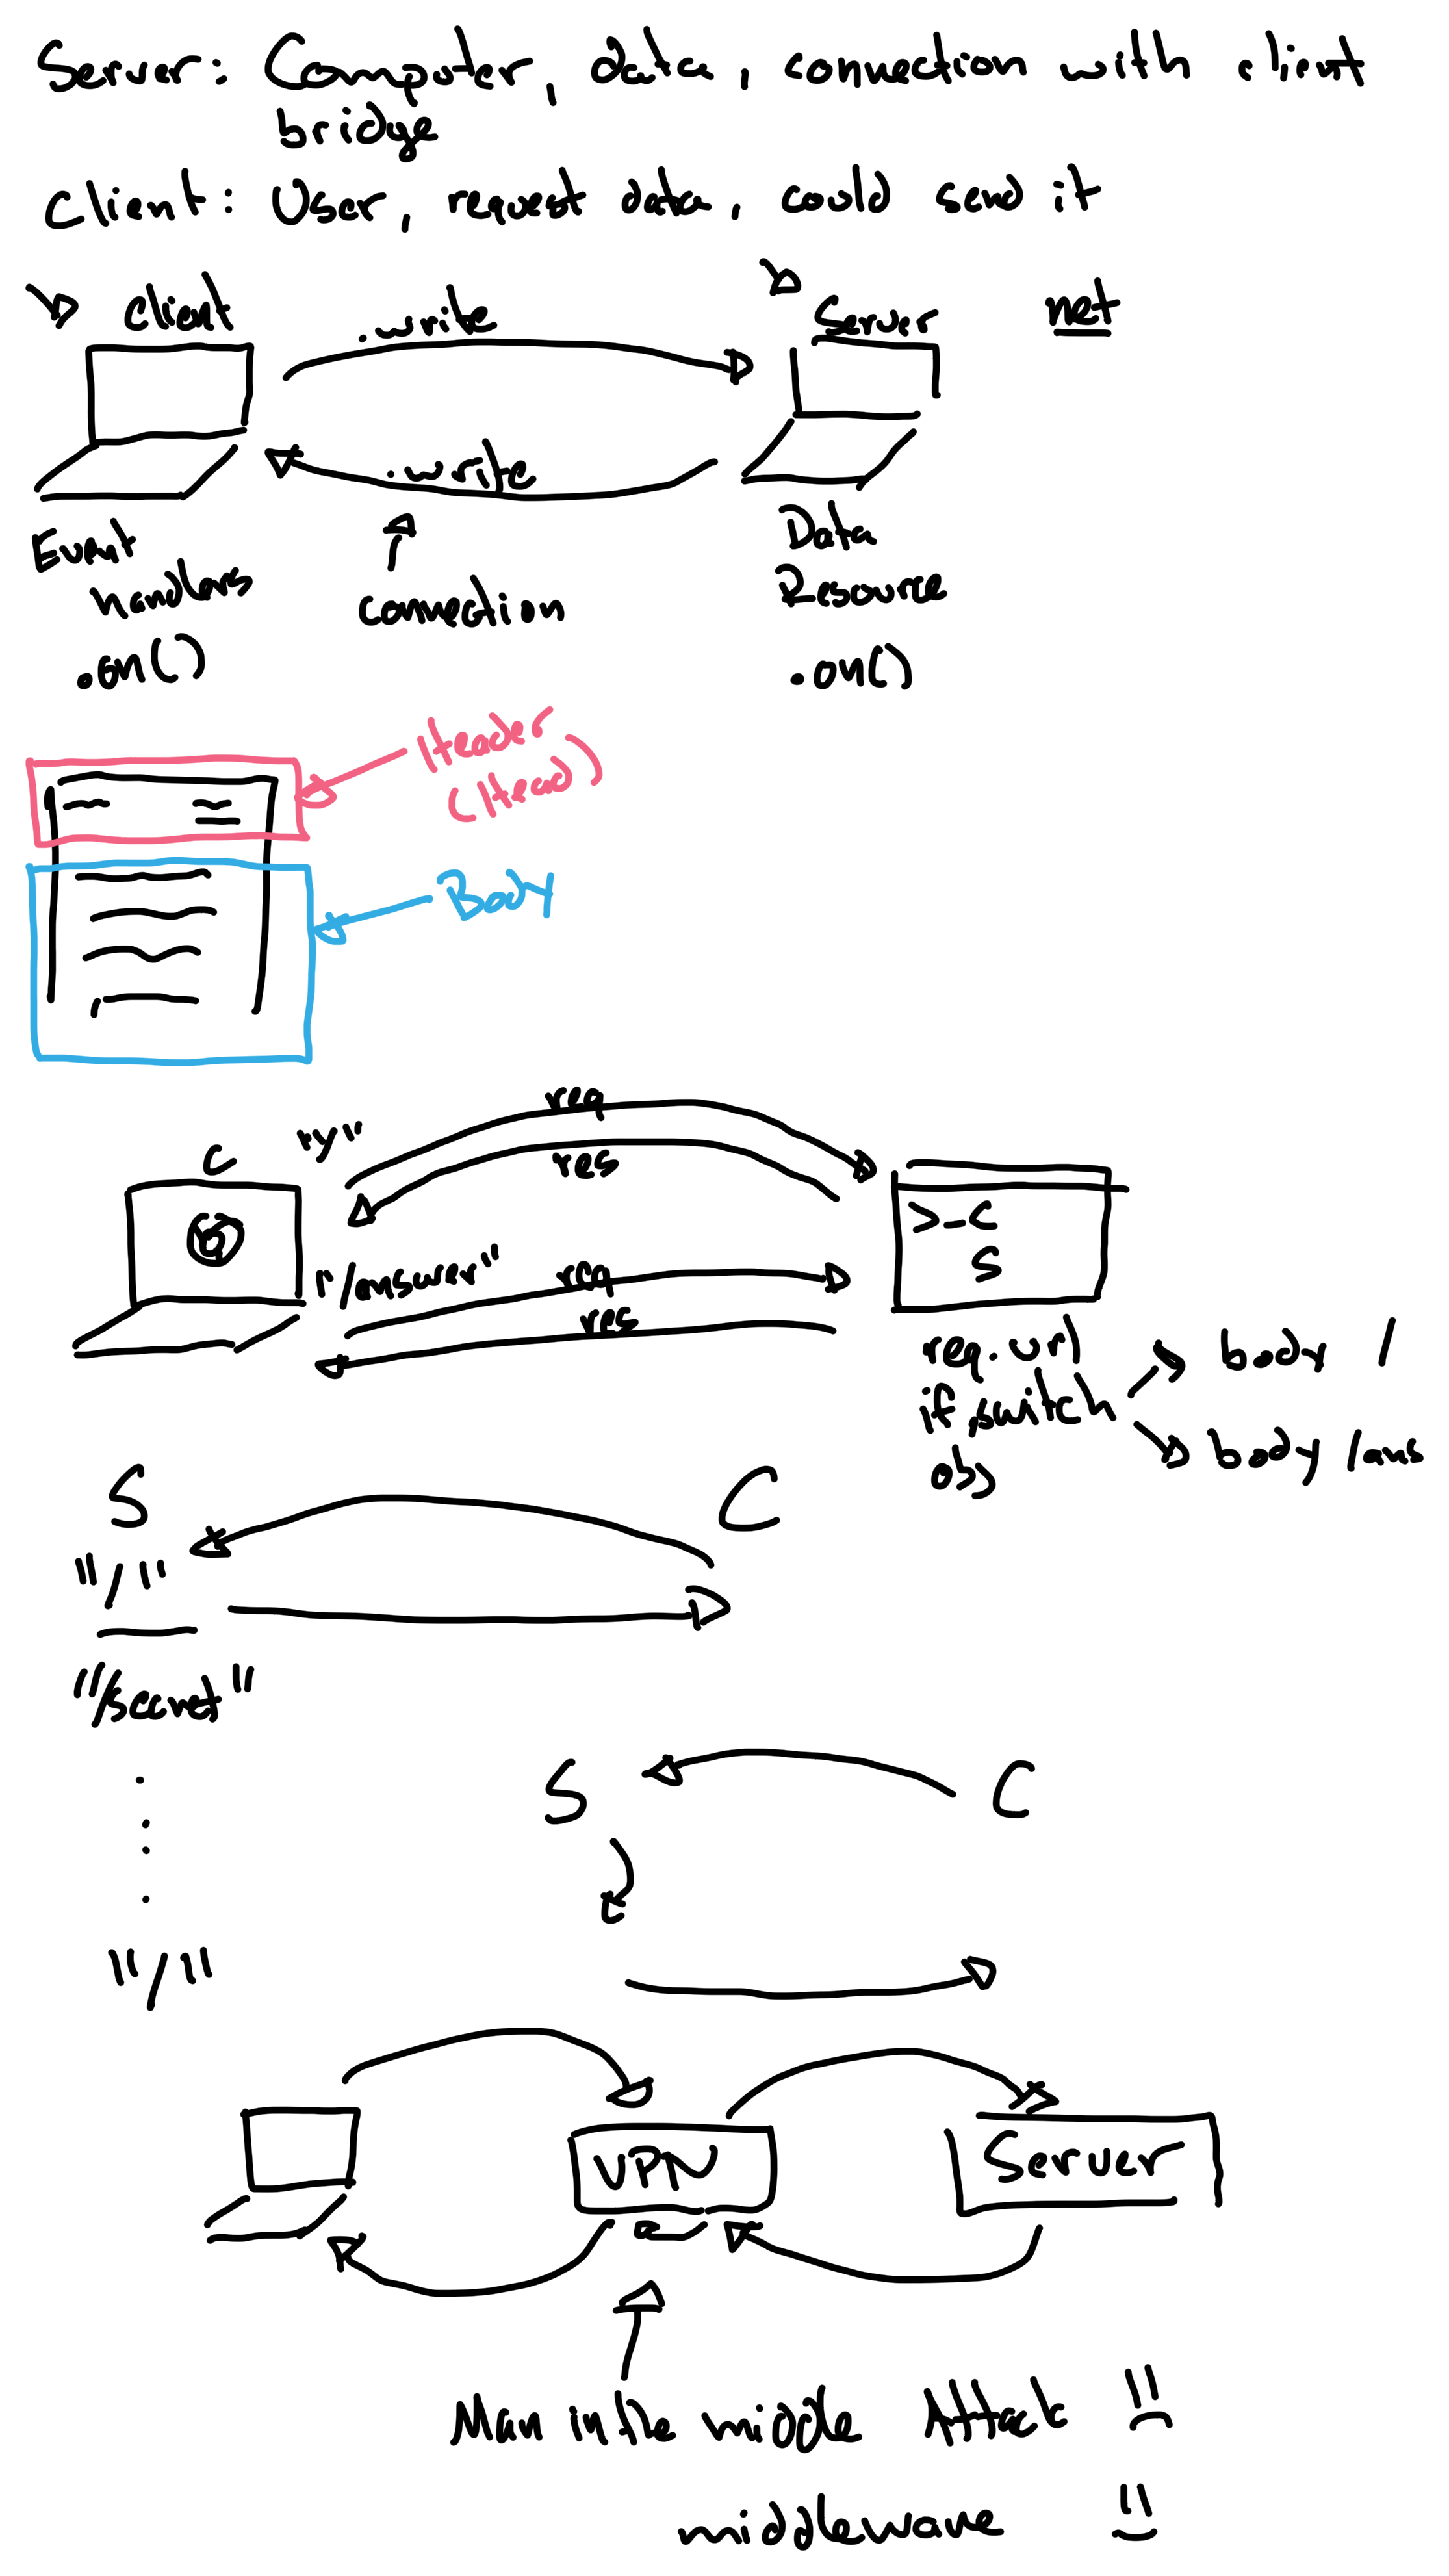 Server: Computer, data, connection with client
bridge
Client: User, request data, could send it
Client
.write
Server
net
.write
Event
handlers
.on()
connection
Data
Resource
.on()
Header
(Head)
Body
C
"/"
req
res
>_C
S
"/answer"
req
res
req.url
if, switch
obj
body /
body /ans
S
C
"/"
"/secret"
S
C
"/"
VPN
Server
Man in the middle Attack
middleware